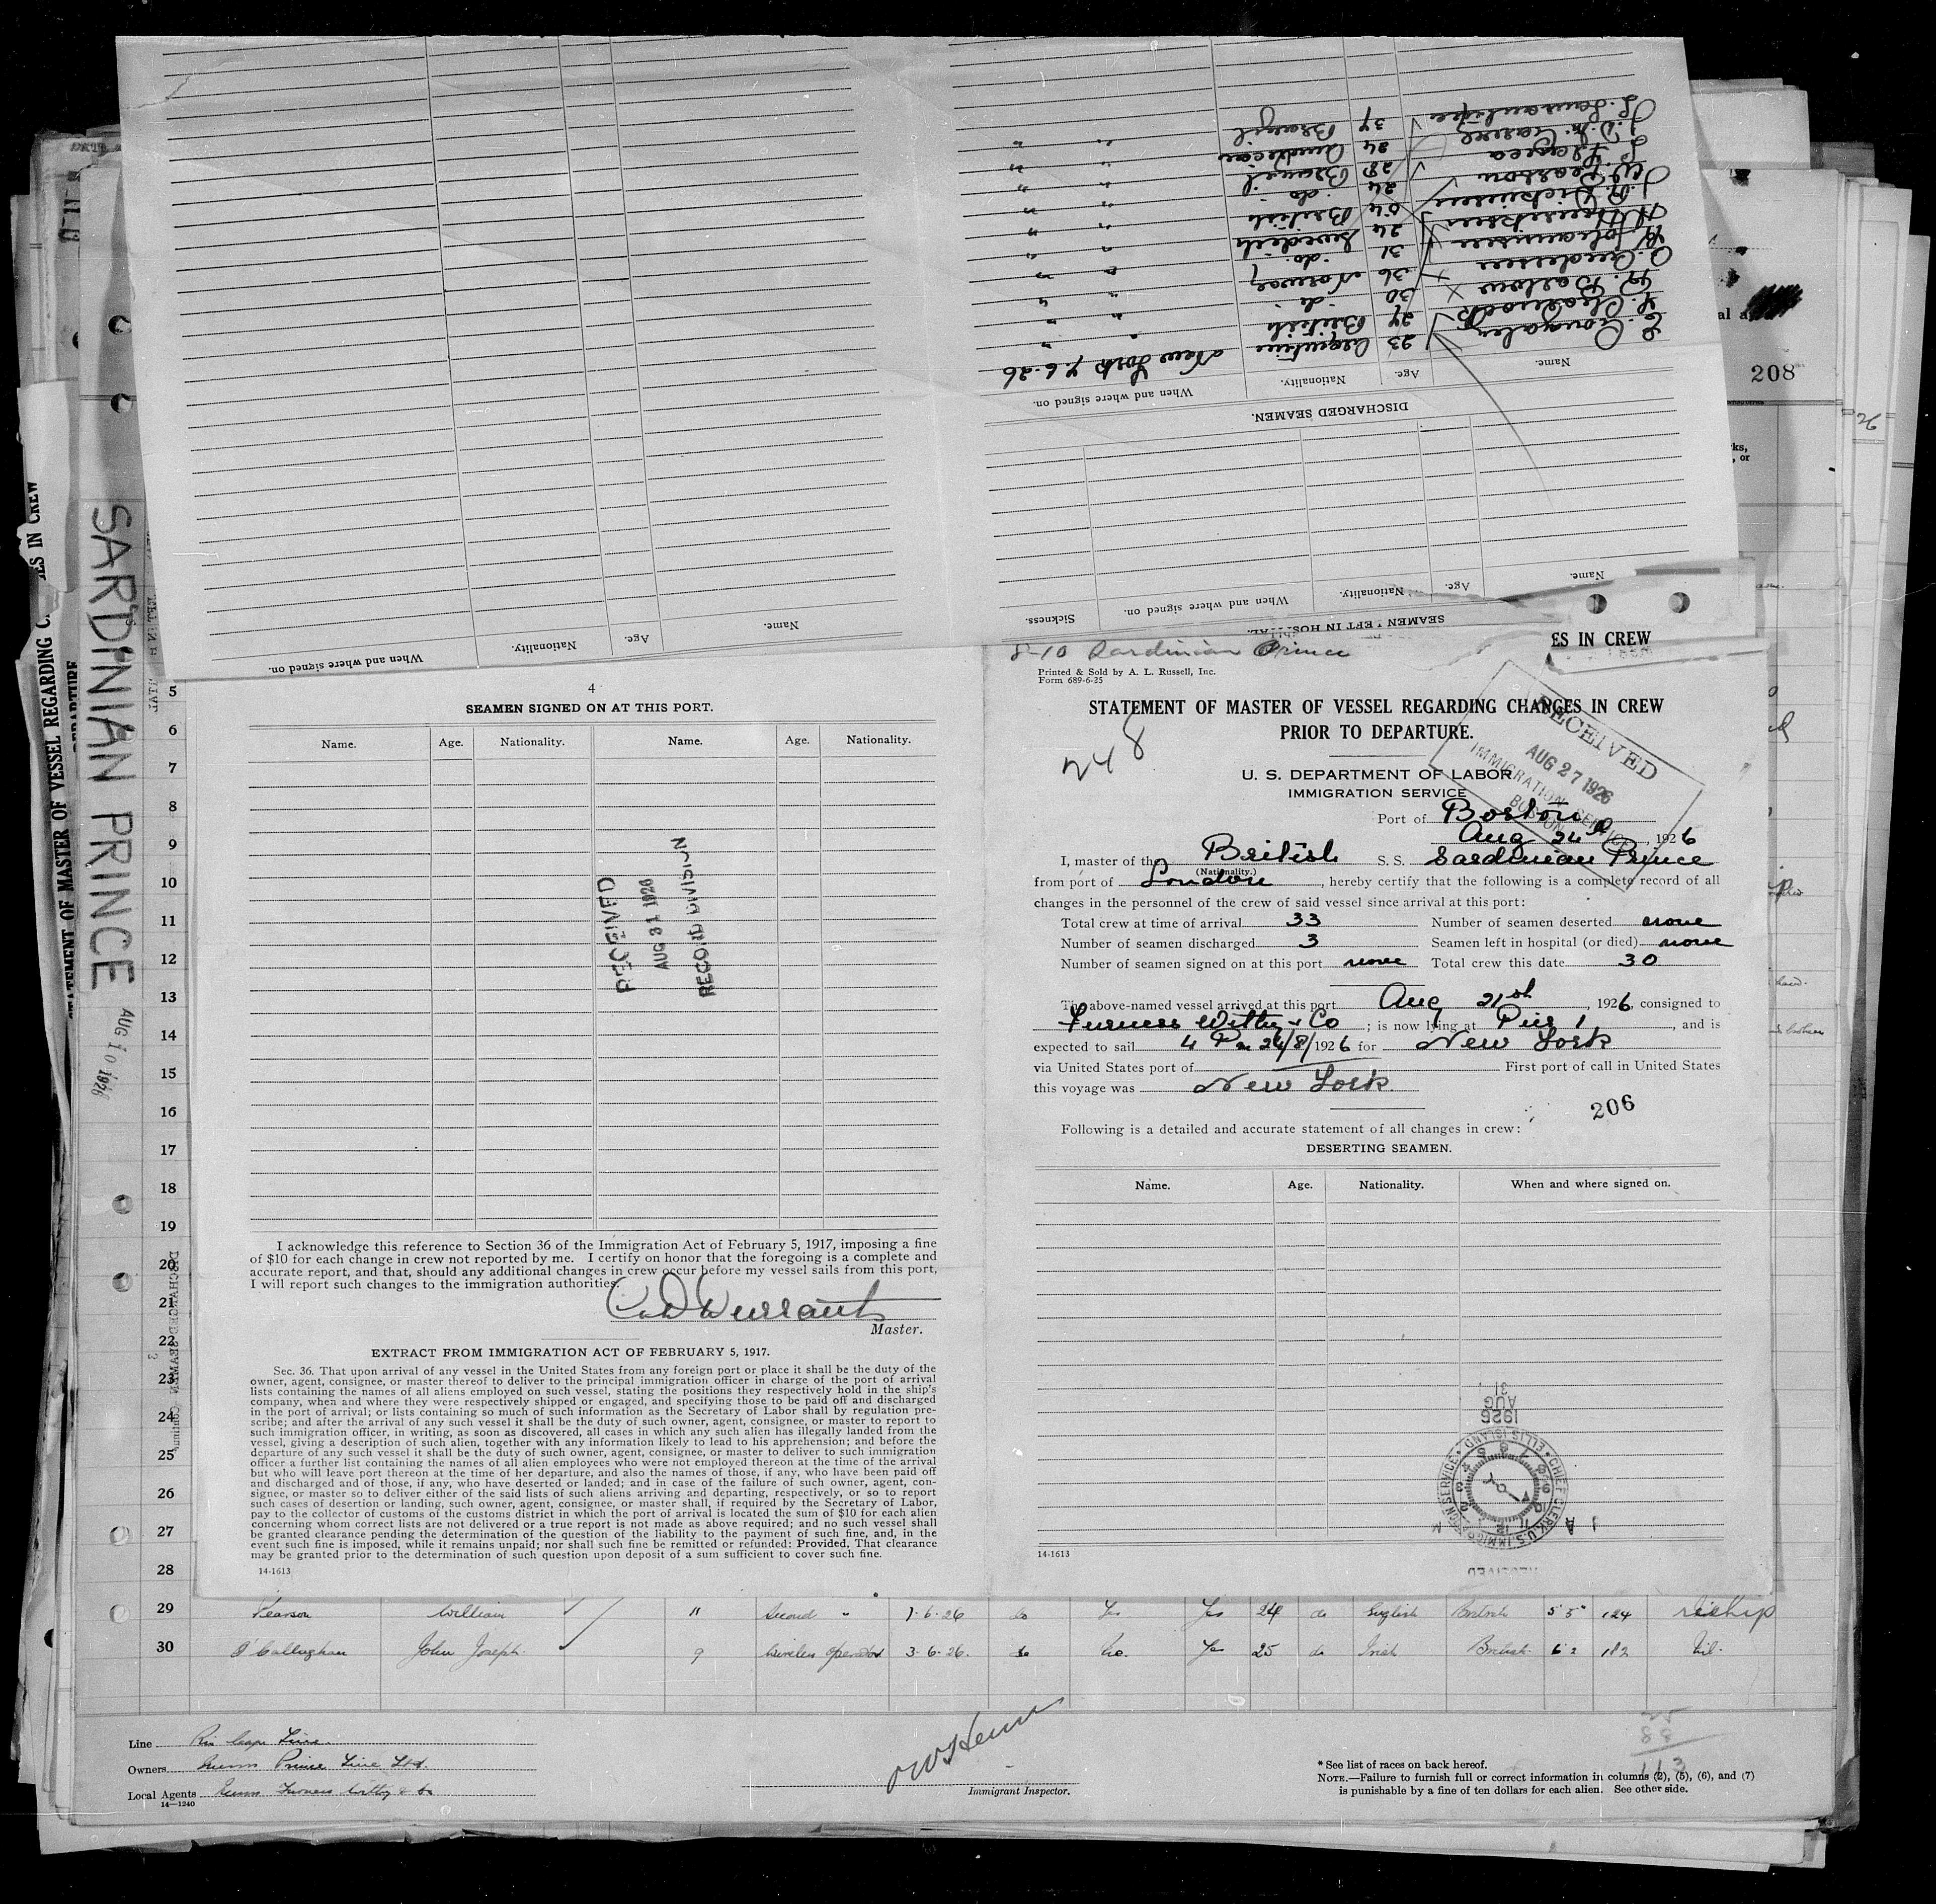 SEAMEN LEFT IN HOSPITAL.
Name. Age. Nationality. When and where signed on. Sickness.
DISCHARGED SEAMEN.
Name. Age. Nationality. When and where signed on.
23 Argentine New York 7.6.26
27 British " "
30 do " "
36 Norway " "
31 do. " "
24 Swedish " "
54 British " "
J. R. Dickinson
W. Pearson 24 do " "
28 Brazil " "
24 American " "
37 Brazil " "
Name. Age. Nationality. When and where signed on.
208
SARDINIAN PRINCE
AUG 10 1926
STATEMENT OF MASTER OF VESSEL REGARDING
ES IN CREW
ES IN CREW
4
SEAMEN SIGNED ON AT THIS PORT.
Name. Age. Nationality. Name. Age. Nationality.
RECEIVED
AUG 31 1926
RECORD DIVISION
I acknowledge this reference to Section 36 of the Immigration Act of February 5, 1917, imposing a fine
of $10 for each change in crew not reported by me. I certify on honor that the foregoing is a complete and
accurate report, and that, should any additional changes in crew occur before my vessel sails from this port,
I will report such changes to the immigration authorities.
Durrant
Master.
EXTRACT FROM IMMIGRATION ACT OF FEBRUARY 5, 1917.
Sec. 36. That upon arrival of any vessel in the United States from any foreign port or place it shall be the duty of the
owner, agent, consignee, or master thereof to deliver to the principal immigration officer in charge of the port of arrival
lists containing the names of all aliens employed on such vessel, stating the positions they respectively hold in the ship's
company, when and where they were respectively shipped or engaged, and specifying those to be paid off and discharged
in the port of arrival; or lists containing so much of such information as the Secretary of Labor shall by regulation pre-
scribe; and after the arrival of any such vessel it shall be the duty of such owner, agent, consignee, or master to report to
such immigration officer, in writing, as soon as discovered, all cases in which any such alien has illegally landed from the
vessel, giving a description of such alien, together with any information likely to lead to his apprehension; and before the
departure of any such vessel it shall be the duty of such owner, agent, consignee, or master to deliver to such immigration
officer a further list containing the names of all alien employees who were not employed thereon at the time of the arrival
but who will leave port thereon at the time of her departure, and also the names of those, if any, who have been paid off
and discharged and of those, if any, who have deserted or landed; and in case of the failure of such owner, agent, con-
signee, or master so to deliver either of the said lists of such aliens arriving and departing, respectively, or so to report
such cases of desertion or landing, such owner, agent, consignee, or master shall, if required by the Secretary of Labor,
pay to the collector of customs of the customs district in which the port of arrival is located the sum of $10 for each alien
concerning whom correct lists are not delivered or a true report is not made as above required; and no such vessel shall
be granted clearance pending the determination of the question of the liability to the payment of such fine, and, in the
event such fine is imposed, while it remains unpaid; nor shall such fine be remitted or refunded: Provided, That clearance
may be granted prior to the determination of such question upon deposit of a sum sufficient to cover such fine.
14-1613
8-10 Sardinian Prince
Printed & Sold by A. L. Russell, Inc.
Form 689-6-25
STATEMENT OF MASTER OF VESSEL REGARDING CHANGES IN CREW
PRIOR TO DEPARTURE.
248
RECEIVED
AUG 27 1926
IMMIGRATION SERVICE
BOSTON
U. S. DEPARTMENT OF LABOR
IMMIGRATION SERVICE
Port of Boston
Aug 24th, 1926
I, master of the British S. S. Sardinian Prince
(Nationality.)
from port of London, hereby certify that the following is a complete record of all
changes in the personnel of the crew of said vessel since arrival at this port:
Total crew at time of arrival 33 Number of seamen deserted none
Number of seamen discharged 3 Seamen left in hospital (or died) none
Number of seamen signed on at this port none Total crew this date 30
The above-named vessel arrived at this port Aug 21st, 1926, consigned to
Furness Withy & Co; is now lying at Pier 1, and is
expected to sail 4 Pm 24/8/1926 for New York
via United States port of First port of call in United States
this voyage was New York.
206
Following is a detailed and accurate statement of all changes in crew:
DESERTING SEAMEN.
Name. Age. Nationality. When and where signed on.
1926
AUG
31
CHIEF CLERK, U.S. IMMIGRATION SERVICE ELLIS ISLAND
RECEIVED
14-1613
5
6
7
8
9
10
11
12
13
14
15
16
17
18
19
20
21
22
23
24
25
26
27
28
29 Pearson William 11 Second " 7-6-26 do Yes Yes 24 do English British 5 5" 124
30 O'Callaghan John Joseph 9 Wireless Operator 3-6-26. do No. Yes 25 do Irish British 6 2 182 Nil.
Line Rio Cape Line.
Owners Prince Line Ltd.
Local Agents Furness Withy & Co
14—1240
Immigrant Inspector.
* See list of races on back hereof.
NOTE.—Failure to furnish full or correct information in columns (2), (5), (6), and (7)
is punishable by a fine of ten dollars for each alien. See other side.